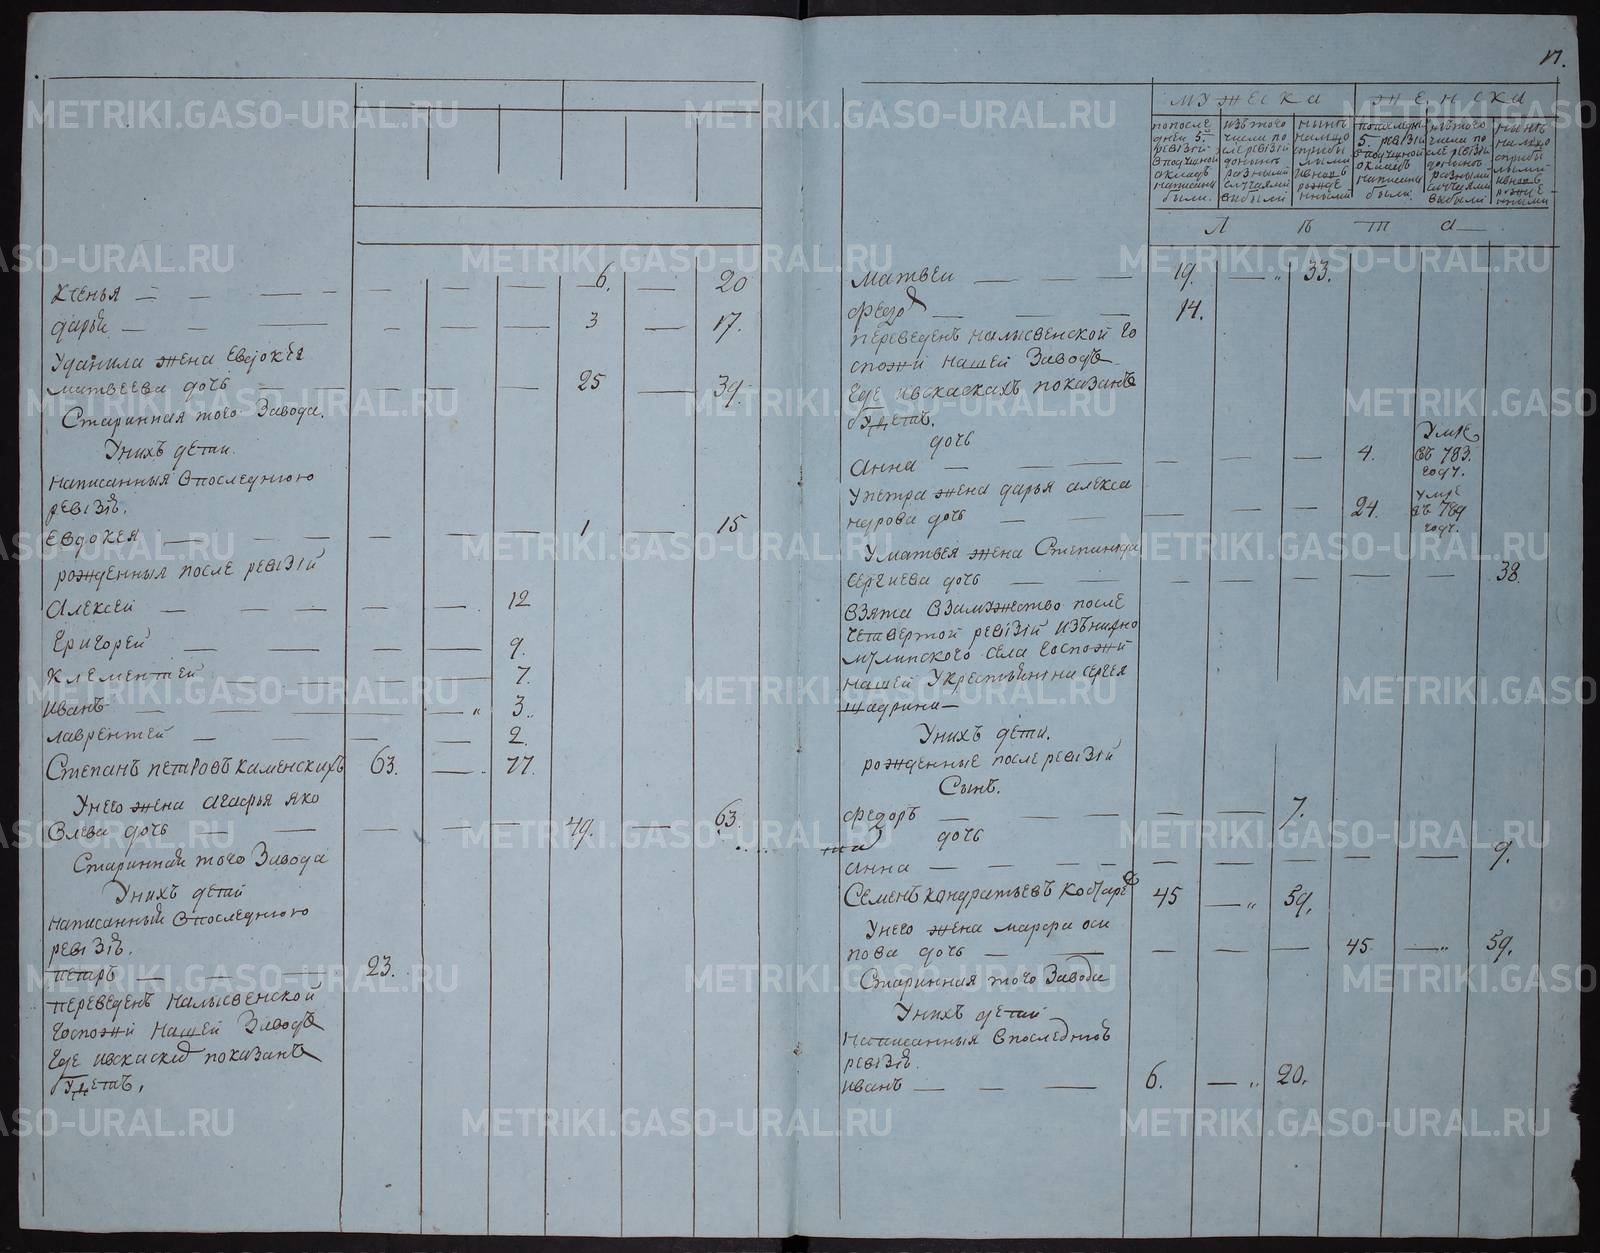 Ксенья — — — — — — 6. — 20
дарья — — — — — — 3 — 17.
Уданила жена Евдокѣя
матвеева дочь — — — — 25 — 39.
Старинная того Завода.
Унихъ дети.
написанныя Впоследнюю
ревізіѣ.
Евдокея — — — — — 1 — 15
рожденныя после ревізіи
Алексеи — — — — — 12
Григореи — — — — 9.
Клементеи — — — 7.
Иванъ — — — 3.
лаврентеи — — — 2.
Степанъ петровъ каменскихъ 63. — 77.
Унего жена агафья яко
влева дочь — — — — — 49. — 63.
Стариннаѣ того Завода
Унихъ детаи
написанныи Впоследнюю
ревізіѣ.
петръ — — — 23.
переведенъ Налысвенской
Госпожи Нашеи Заводъ
Где ивскаскѣ показанъ
будетъ.
17.
мужеска женска
попосле днеи 5. ревізіи Вподушной окладъ написаны были.
изътого числа по сле ревізіи доныне разными случаями выбыли
ныне налицо сприбылыми ивновь рожденными
попоследнеи 5. ревізіи Вподушной окладъ написаны были.
изътого числа после ревізіи доныне разными случаями выбыли
ныне налицо сприбылыми ивновь рожденными
Л ѣ т а
матвеи — — — 19. — 33.
федор — — — 14.
переведенъ Налысвенской го
спожи нашеи Заводъ
Где ивскаскахъ показанъ
будетъ.
дочь
Анна — — — — — — 4. Умре въ 783. году.
Упетра жена дарья алекса
ндрова дочь — — — — — 24. умре въ 789 году.
Уматвея жена Степанида
сергиева дочь — — — — — — — — 38.
взята Взамужество после
четвертой ревізіи изънижно
мулинского села Госпожи
нашеи Укрестьянина Сергея
шадрина —
Унихъ дети.
рожденные после ревізіи
Сынъ.
федоръ — — — — — 7.
дочь
анна — — — — — — — — — 9.
Семенъ кондратьевъ Косарев 45 — 59.
Унего жена марфа оси
пова дочь — — — — — 45 — 59.
Старинная того Завода
Унихъ детаи
Написанныя Впоследнюю
ревізіѣ.
иванъ — — — 6. — 20.
METRIKI.GASO-URAL.RU